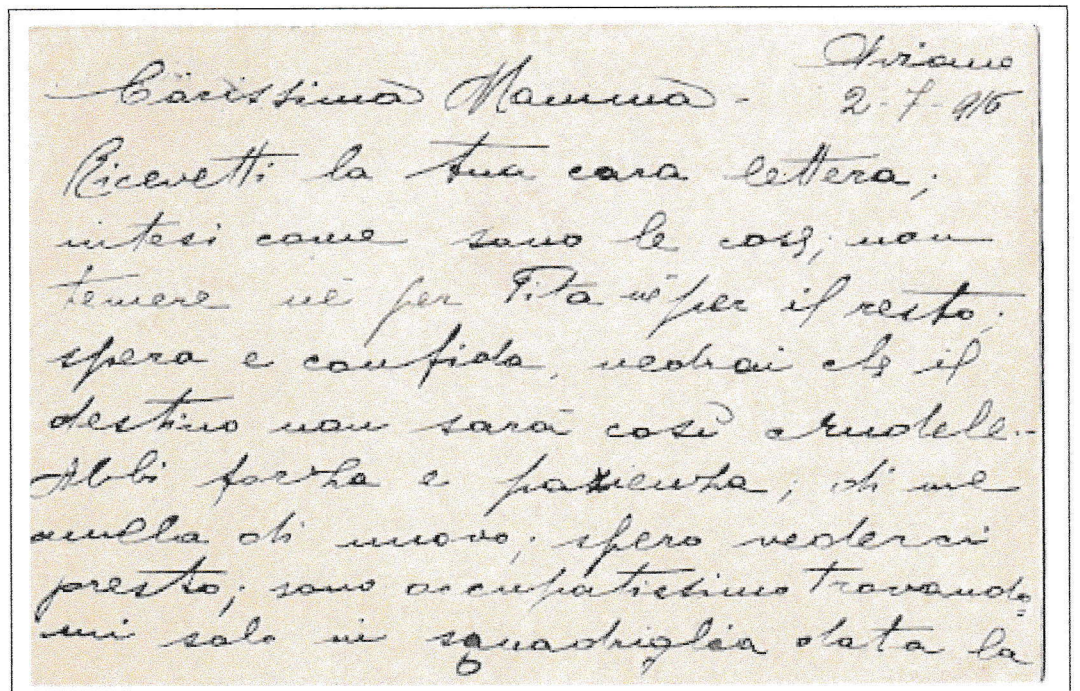 Aviano
2-7-916
Carissima Mamma -
Ricevetti la tua cara lettera;
intesi come sono le cose; non
temere nè per Pita nè per il resto;
spera e confida, vedrai che il
destino non sarà così crudele.-
Abbi forza e pazienza; di me
nulla di nuovo; spero vederci
presto; sono occupatissimo trovando=
mi solo in squadriglia data la